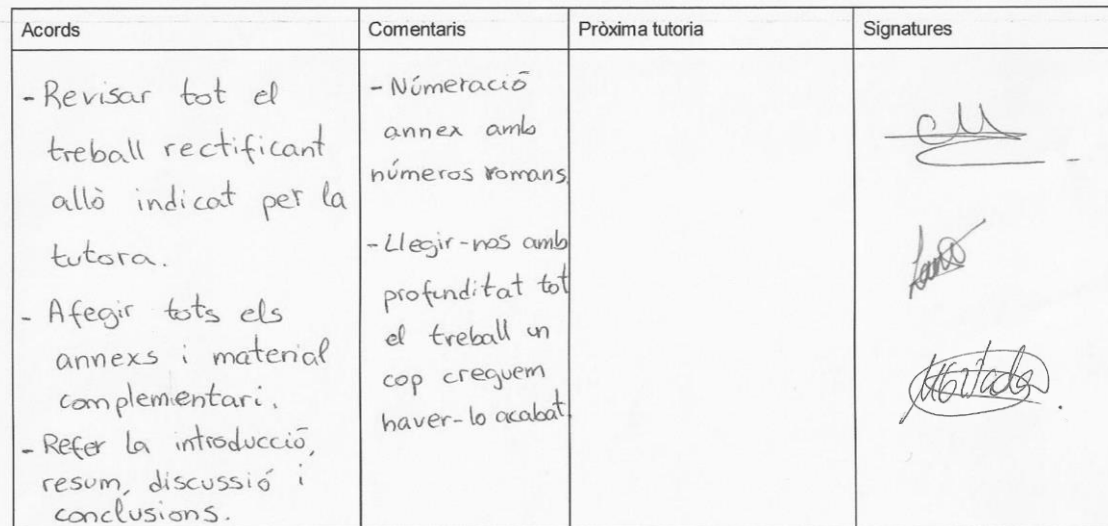 Acords
Comentaris
Pròxima tutoria
Signatures
- Revisar tot el
treball rectificant
allò indicat per la
tutora.
- Afegir tots els
annexs i material
complementari.
- Refer la introducció,
resum, discussió i
conclusions.
- Númeració
annex amb
números romans.
- Llegir-nos amb
profunditat tot
el treball un
cop creguem
haver-lo acabat.